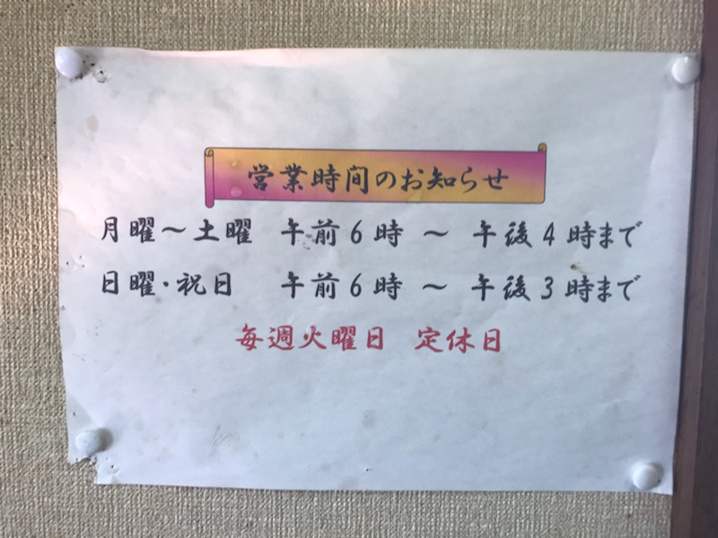 営業時間のお知らせ
月曜～土曜 午前6時 ～ 午後4時まで
日曜・祝日 午前6時 ～ 午後3時まで
毎週火曜日 定休日